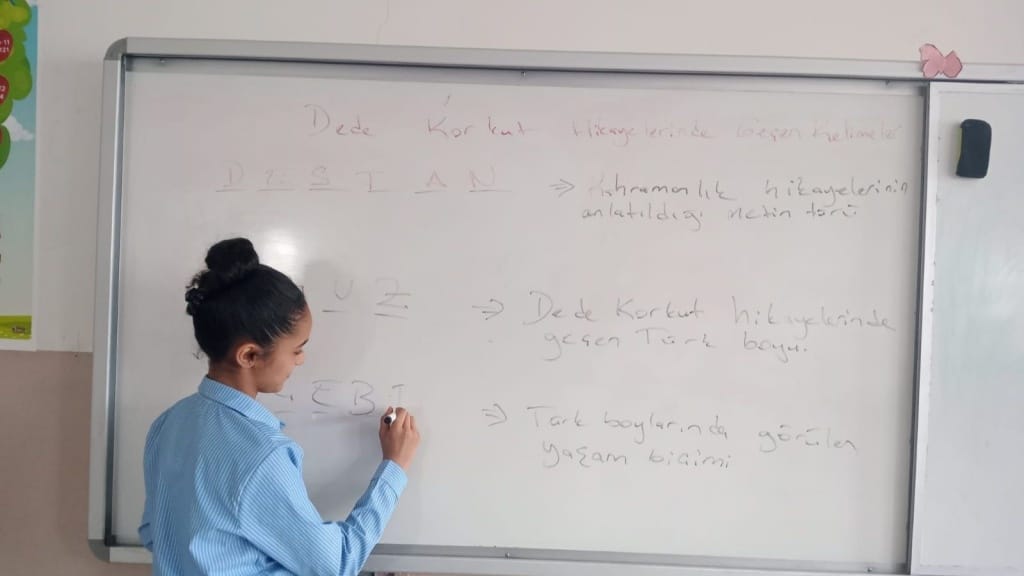 Dede Korkut Hikayelerinde Geçen Kelimeler
D E S T A N ⇒ Kahramanlık hikayelerinin
anlatıldığı metin türü
U Z ⇒ Dede Korkut hikayelerinde
geçen Türk boyu.
E B ⇒ Türk boylarında görülen
yaşam biçimi